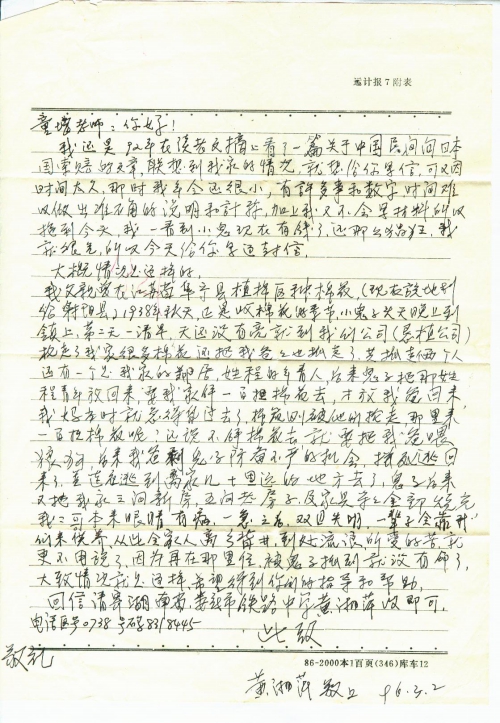 运计报7附表
童增老师：你好！
我还是92年在读者文摘上看了一篇关于中国民间向日本
国索赔的文章，联想到我家的情况，就想给你写信，可又因
时间太久，那时我年令还很小，有许多事和数字、时间难
以做出准确的说明和计称，加上我又不会写材料所以
拖到今天，我一看到小鬼现在有钱了，还那么猖狂，我
就很气，所以今天给你写这封信。
大概情况是这样的，
我父亲原在江苏省阜宁县植棉区种棉花，（现在该地划
给射阳县）1938年秋天，正是收棉花的季节，小鬼子头天晚上到
镇上，第二天一清早，天还没有亮就到我们公司（垦植公司）
抢走了我家很多棉花，还把我爸爸也抓走了，共抓走两个人
还有一个是我家的邻居，姓程的青年人，后来鬼子把那姓
程青年放回来，要我家伴一百担棉花去，才放我爸回来
我妈当时就急得昏过去了，棉花则被他们抢走，那里来
一百担棉花呢？还说不伴棉花去就要把我爸喂
狼狗，后来我爸利鬼子防备不严的机会，撞死逃回
来了，并连夜逃到离家几十里远的地方去了，鬼子后来
又把我家三间新房，五间老房子及家具等等全部烧光
我二哥本来眼睛有病，一急之后，双目失明，一辈子全靠我
们来供养，从此全家人离乡背井，到处流浪所受的苦就
更不用说了，因为再在那里住，被鬼子抓到就没有命了，
大致情况就是这样，希望得到你们的指导和帮助。
回信请寄湖南省娄底市铁路中学黄湘萍收即可。
电话区号0738 号码8318445
此致
敬礼
86-2000本1百页(346)库车12
黄湘萍 敬上 96.3.2